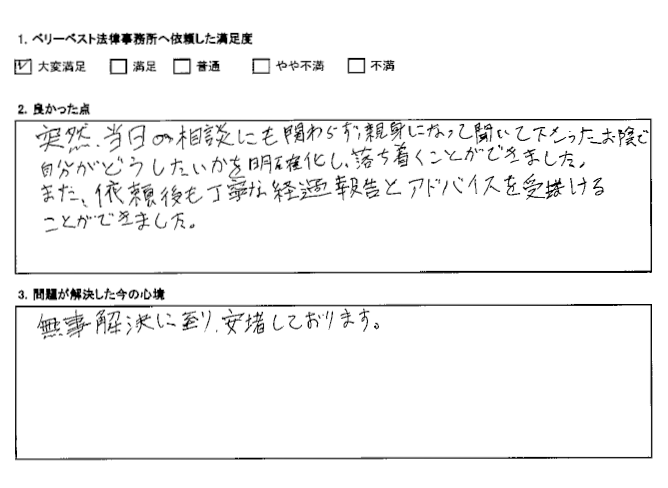 1. ベリーベスト法律事務所へ依頼した満足度
☑ 大変満足 □ 満足 □ 普通 □ やや不満 □ 不満
2. 良かった点
突然、当日の相談にも関わらず、親身になって聞いて下さったお陰で
自分がどうしたいかを明確化し、落ち着くことができました。
また、依頼後も丁寧な経過報告とアドバイスを受けける
ことができました。
3. 問題が解決した今の心境
無事解決に至り、安堵しております。